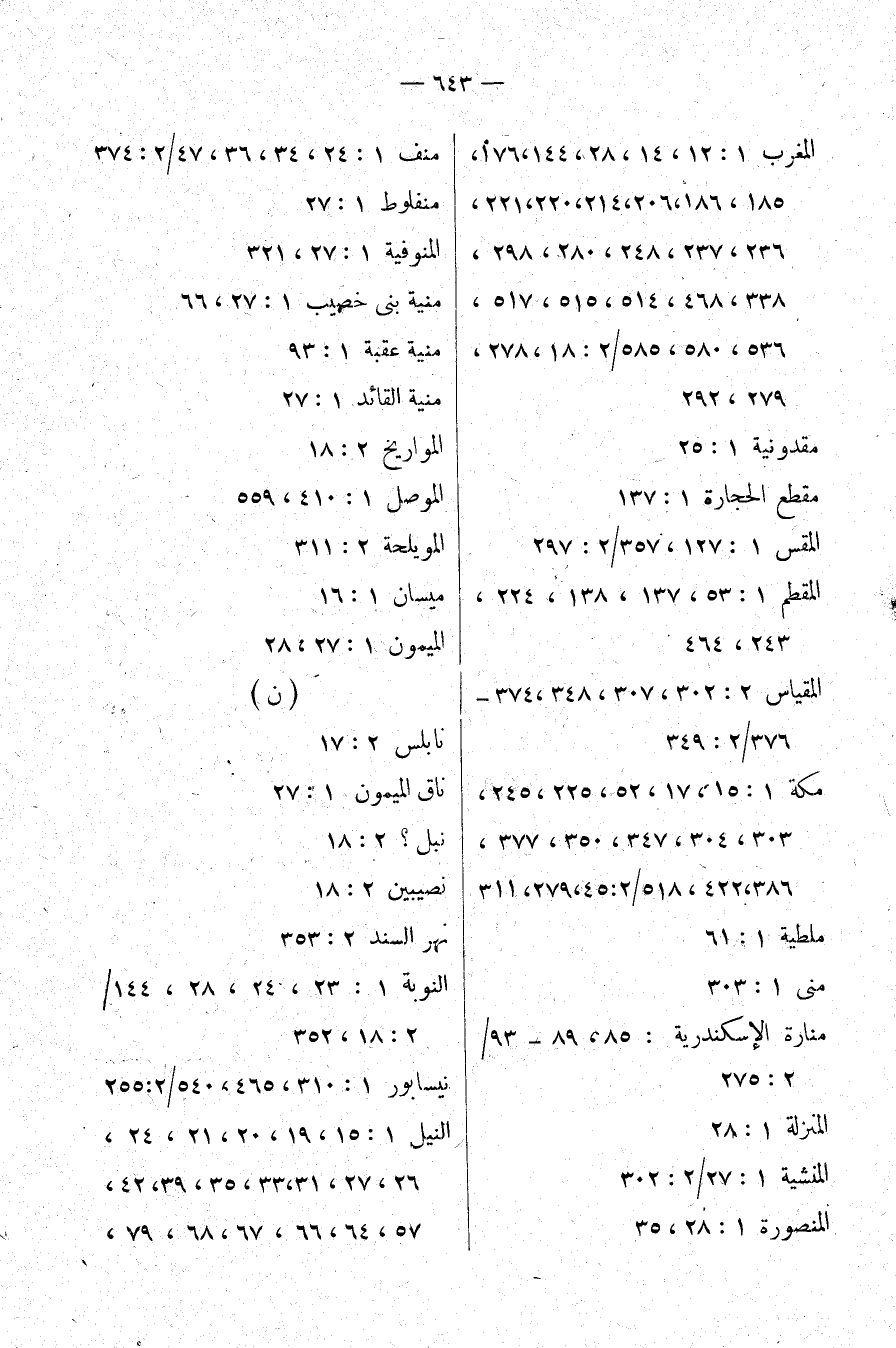 — ٦٤٣ —
المغرب ١ : ١٢ ، ١٤ ، ٢٨ ، ١٤٤ ،١٧٦ ،
١٨٥ ، ١٨٦ ،٢٠٦ ،٢١٤ ،٢٢٠ ،٢٢١ ،
٢٣٦ ، ٢٣٧ ، ٢٤٨ ، ٢٨٠ ، ٢٩٨ ،
٣٣٨ ، ٤٦٨ ، ٥١٤ ، ٥١٥ ، ٥١٧ ،
٥٣٦ ، ٥٨٠ ، ٥٨٥/٢ : ١٨ ، ٢٧٨ ،
٢٧٩ ، ٢٩٢
مقدونية ١ : ٢٥
مقطع الحجارة ١ : ١٣٧
المقس ١ : ١٢٧ ، ٣٥٧/٢ : ٢٩٧
المقطم ١ : ٥٣ ، ١٣٧ ، ١٣٨ ، ٢٢٤ ،
٢٤٣ ، ٤٦٤
المقياس ٢ : ٣٠٢ ، ٣٠٧ ، ٣٤٨ ، ٣٧٤ –
٣٧٦/٢ : ٣٤٩
مكة ١ : ١٥ ، ١٧ ، ٥٢ ، ٢٢٥ ، ٢٤٥ ،
٣٠٣ ، ٣٠٤ ، ٣٤٧ ، ٣٥٠ ، ٣٧٧ ،
٣٨٦ ،٤٢٢ ، ٥١٨/٢ :٤٥ ،٢٧٩ ،٣١١
ملطية ١ : ٦١
منى ١ : ٣٠٣
منارة الإسكندرية : ٨٥ ، ٨٩ – ٩٣/
٢ : ٢٧٥
المنزلة ١ : ٢٨
المنشية ١ : ٢٧/٢ : ٣٠٢
المنصورة ١ : ٢٨ ، ٣٥
منف ١ : ٢٤ ، ٣٤ ، ٣٦ ، ٤٧/٢ : ٣٧٤
منفلوط ١ : ٢٧
المنوفية ١ : ٢٧ ، ٣٢١
منية بنى خصيب ١ : ٢٧ ، ٦٦
منية عقبة ١ : ٩٣
منية القائد ١ : ٢٧
المواريخ ٢ : ١٨
الموصل ١ : ٤١٠ ، ٥٥٩
المويلحة ٢ : ٣١١
ميسان ١ : ١٦
الميمون ١ : ٢٧ ، ٢٨
( ن )
نابلس ٢ : ١٧
ناق الميمون ١ : ٢٧
نبل ؟ ٢ : ١٨
نصيبين ٢ : ١٨
نهر السند ٢ : ٣٥٣
النوبة ١ : ٢٣ ، ٢٤ ، ٢٨ ، ١٤٤/
٢ : ١٨ ، ٣٥٢
نيسابور ١ : ٣١٠ ، ٤٦٥ ، ٥٤٠/٢ :٢٥٥
النيل ١ : ١٥ ، ١٩ ، ٢٠ ، ٢١ ، ٢٤ ،
٢٦ ، ٢٧ ، ٣١ ،٣٣ ، ٣٥ ، ٣٩ ،٤٢ ،
٥٧ ، ٦٤ ، ٦٦ ، ٦٧ ، ٦٨ ، ٧٩ ،